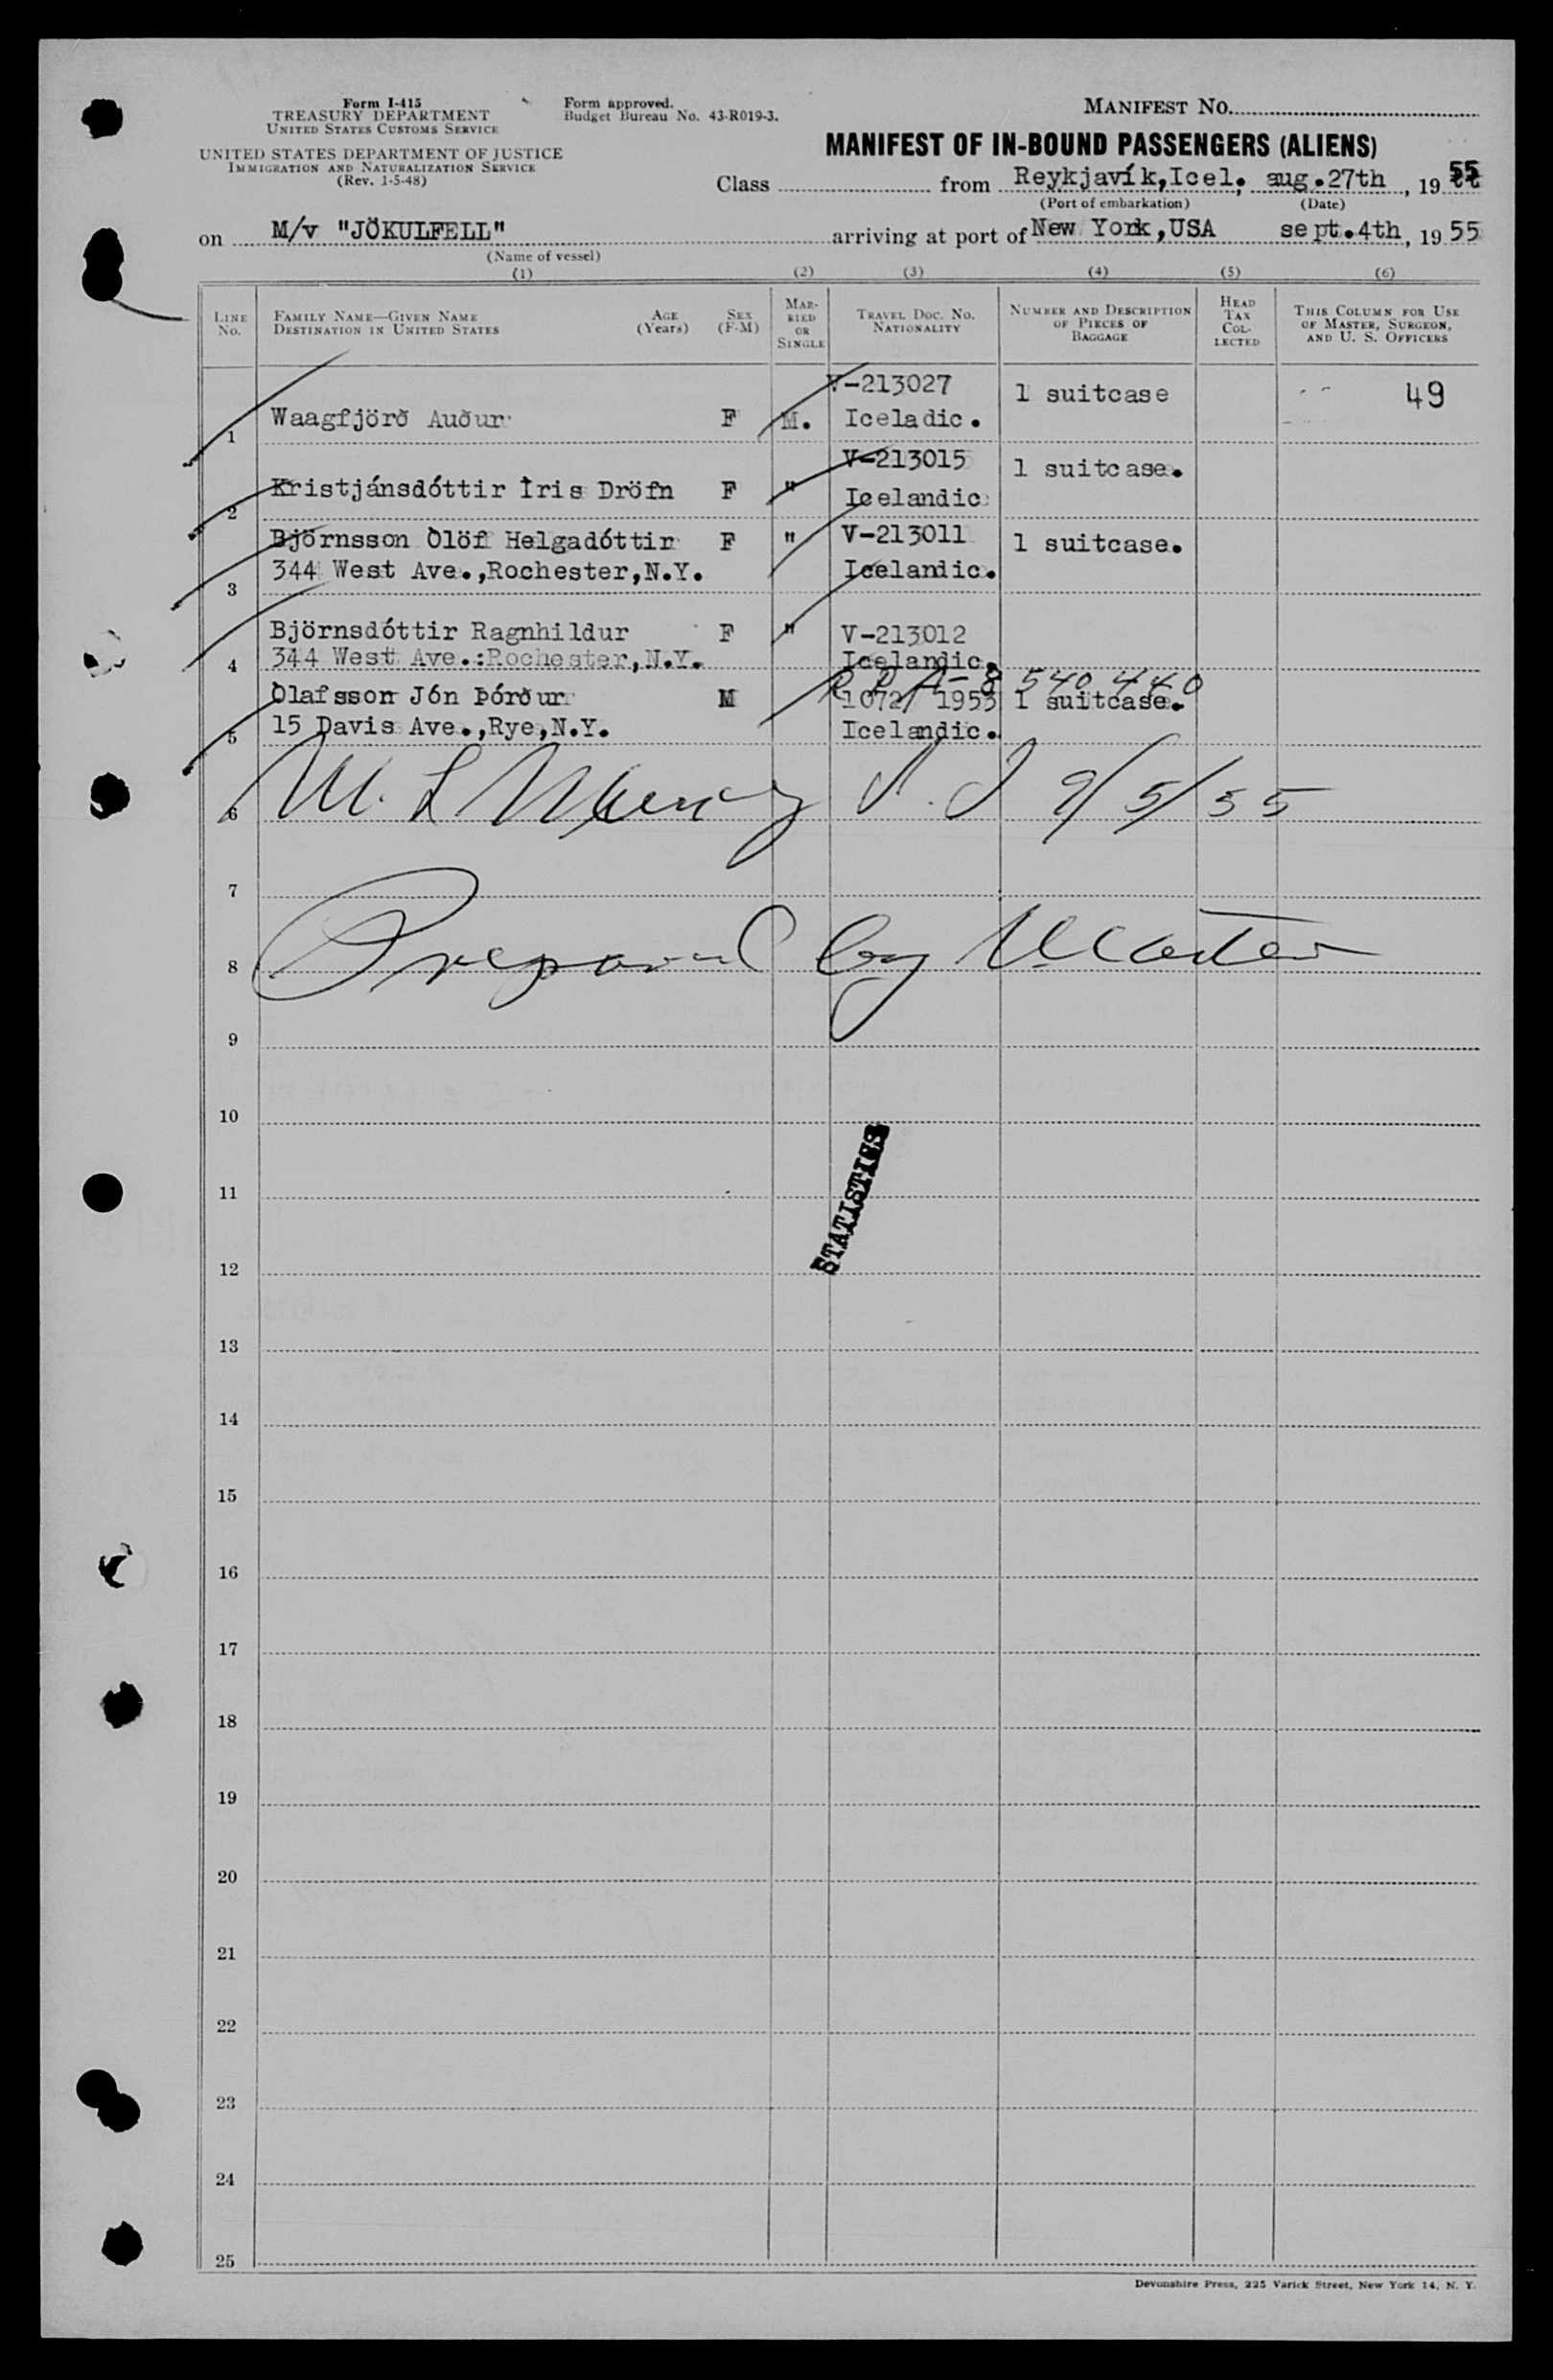 Form I-415
TREASURY DEPARTMENT
UNITED STATES CUSTOMS SERVICE
UNITED STATES DEPARTMENT OF JUSTICE
IMMIGRATION AND NATURALIZATION SERVICE
(Rev. 1-5-48)
Form approved.
Budget Bureau No. 43-R019-3.
MANIFEST NO.
MANIFEST OF IN-BOUND PASSENGERS (ALIENS)
Class from Reykjavík, Icel. aug. 27th, 19 55
(Port of embarkation) (Date)
on M/v "JÖKULFELL" arriving at port of New York, USA sept. 4th, 19 55
(Name of vessel)
(1) (2) (3) (4) (5) (6)
LINE No. FAMILY NAME—GIVEN NAME DESTINATION IN UNITED STATES AGE (Years) SEX (F-M) MARRIED OR SINGLE TRAVEL DOC. NO. NATIONALITY NUMBER AND DESCRIPTION OF PIECES OF BAGGAGE HEAD TAX COLLECTED THIS COLUMN FOR USE OF MASTER, SURGEON, AND U. S. OFFICERS
V-213027 1 suitcase 49
1 Waagfjörð Auður F M. Iceladic.
V-213015 1 suitcase.
2 Kristjánsdóttir Íris Dröfn F " Icelandic
Björnsson Ólöf Helgadóttir F " V-213011 1 suitcase.
3 344 West Ave.,Rochester,N.Y. Icelandic.
Björnsdóttir Ragnhildur F " V-213012
4 344 West Ave.:Rochester,N.Y. Icelandic.
A-8 540 440
Ólafsson Jón Þórður M 1072/ 1953 1 suitcase.
5 15 Davis Ave.,Rye,N.Y. Icelandic.
6 M. L 9/5/55
7
8 Prepared by Master
9
10
11
STATISTICS
12
13
14
15
16
17
18
19
20
21
22
23
24
25
Devonshire Press, 225 Varick Street, New York 14, N. Y.